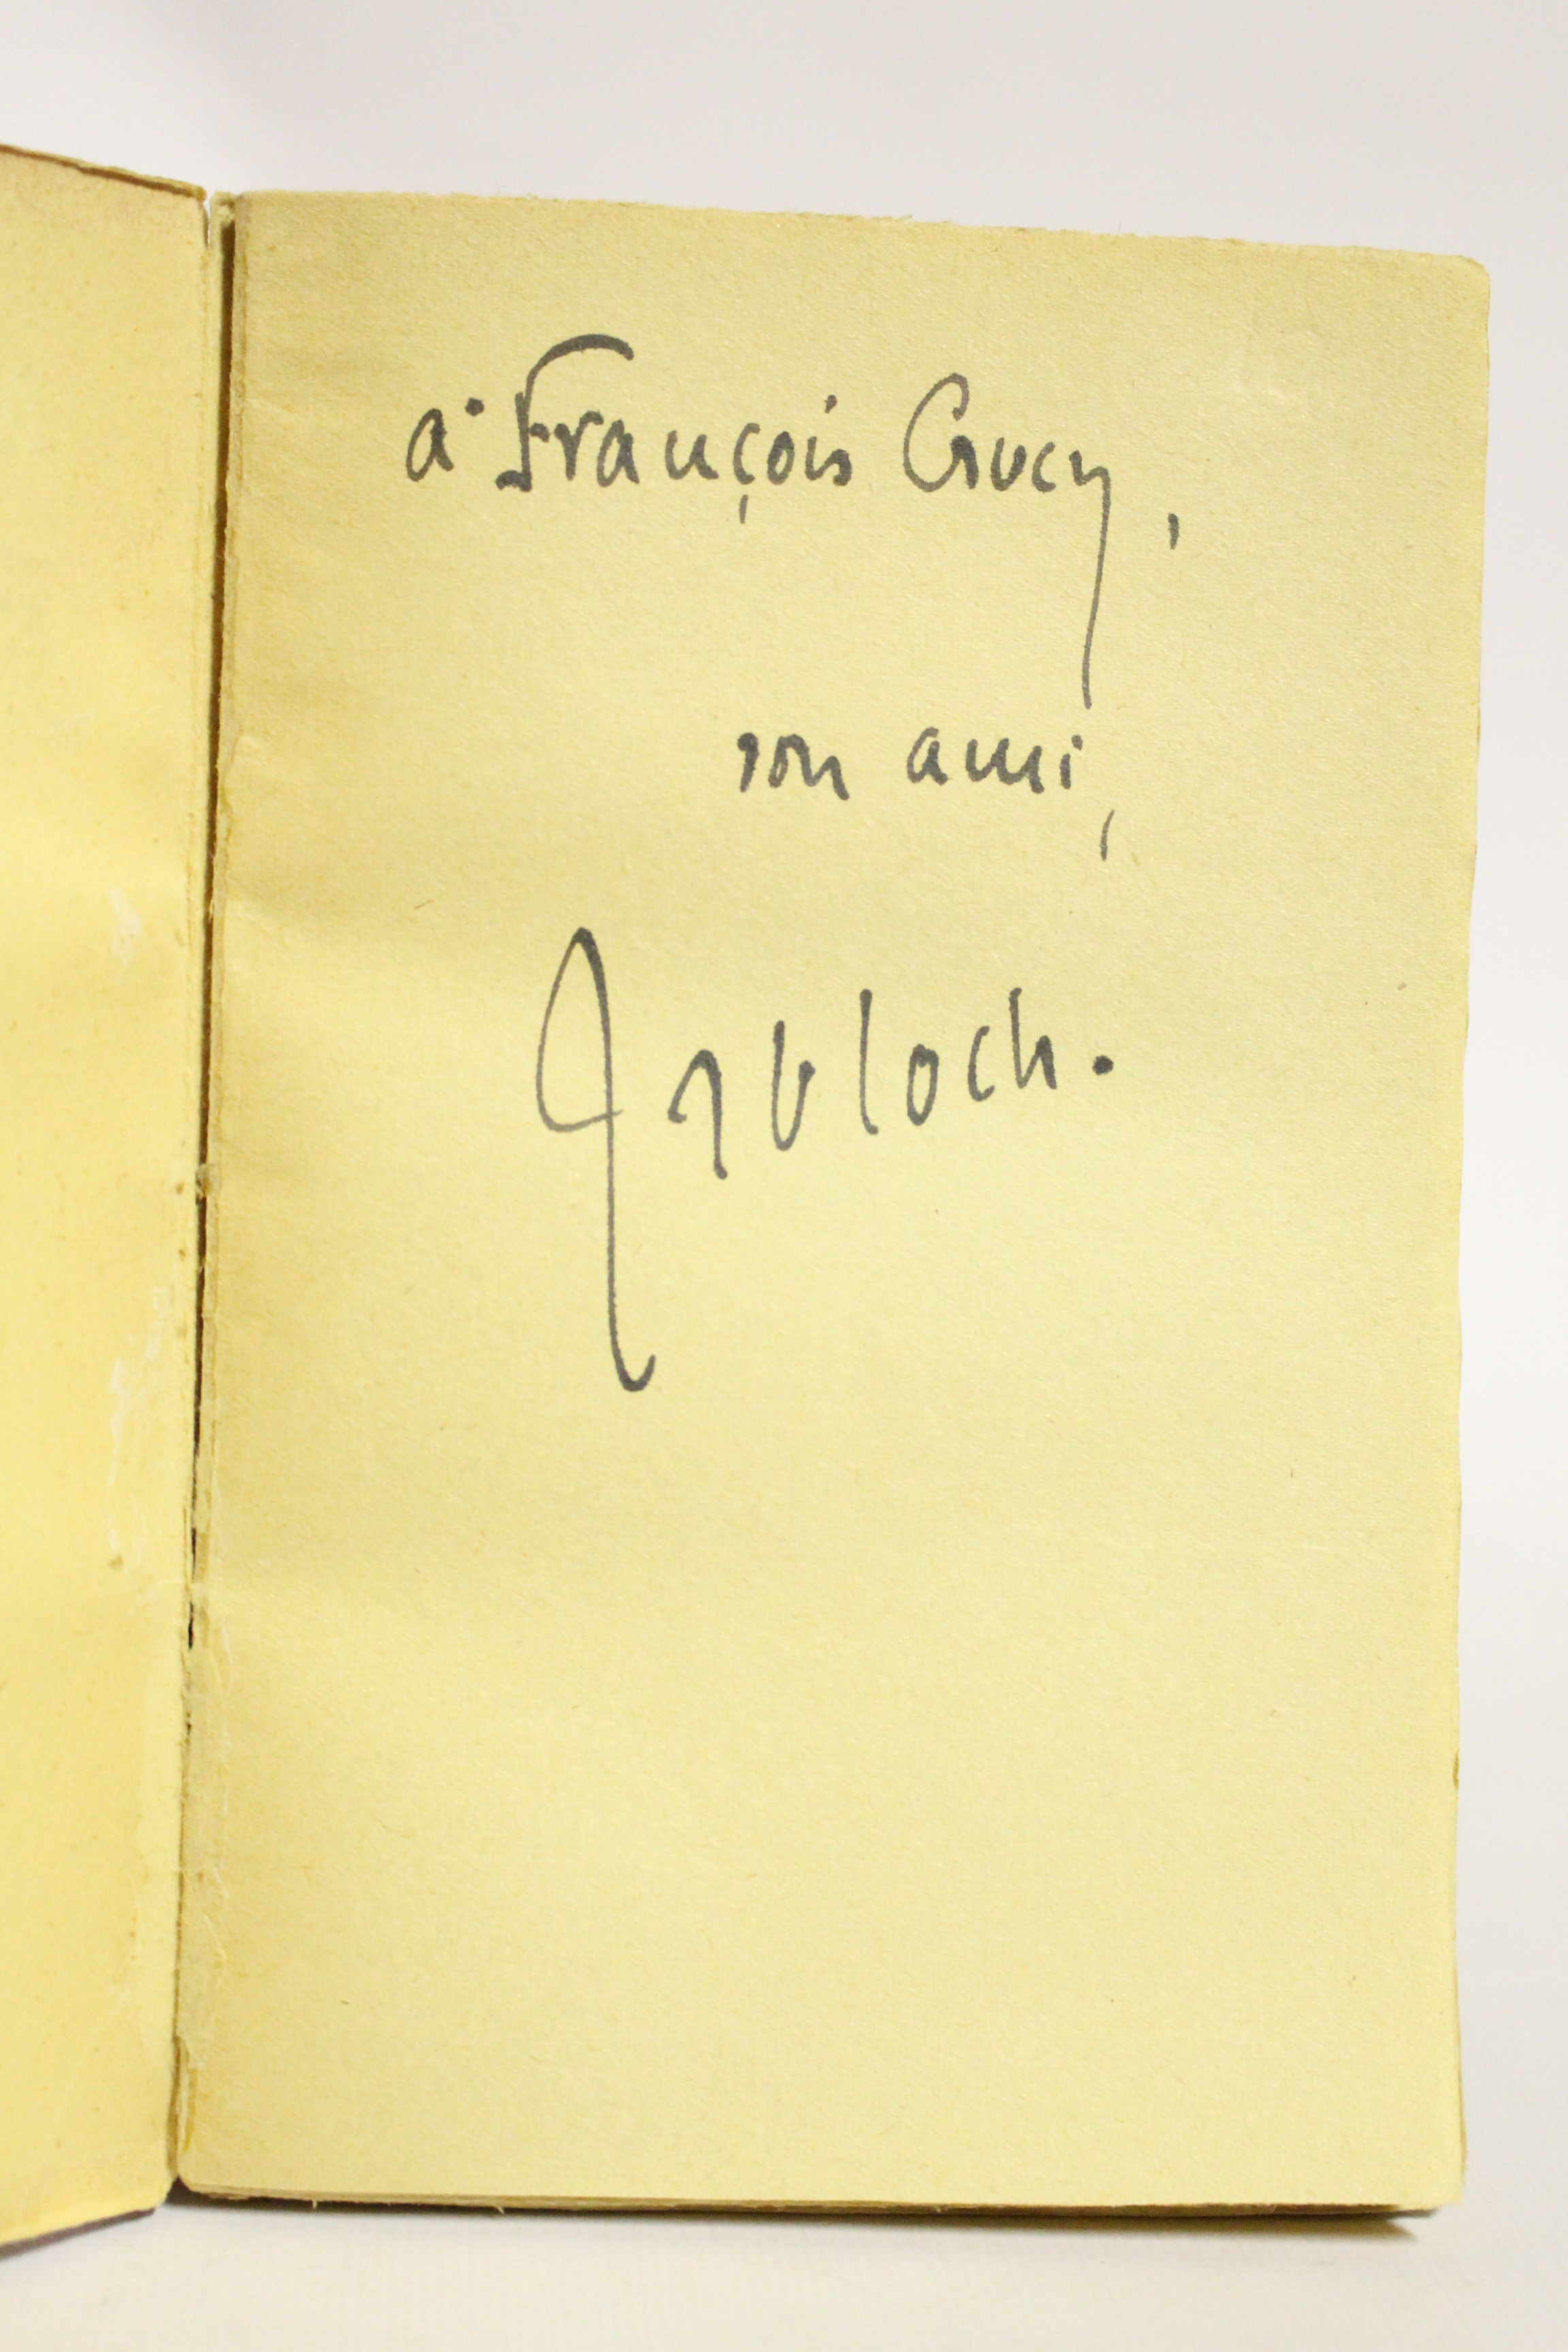 à François Crucy,
son ami,
JRBloch.